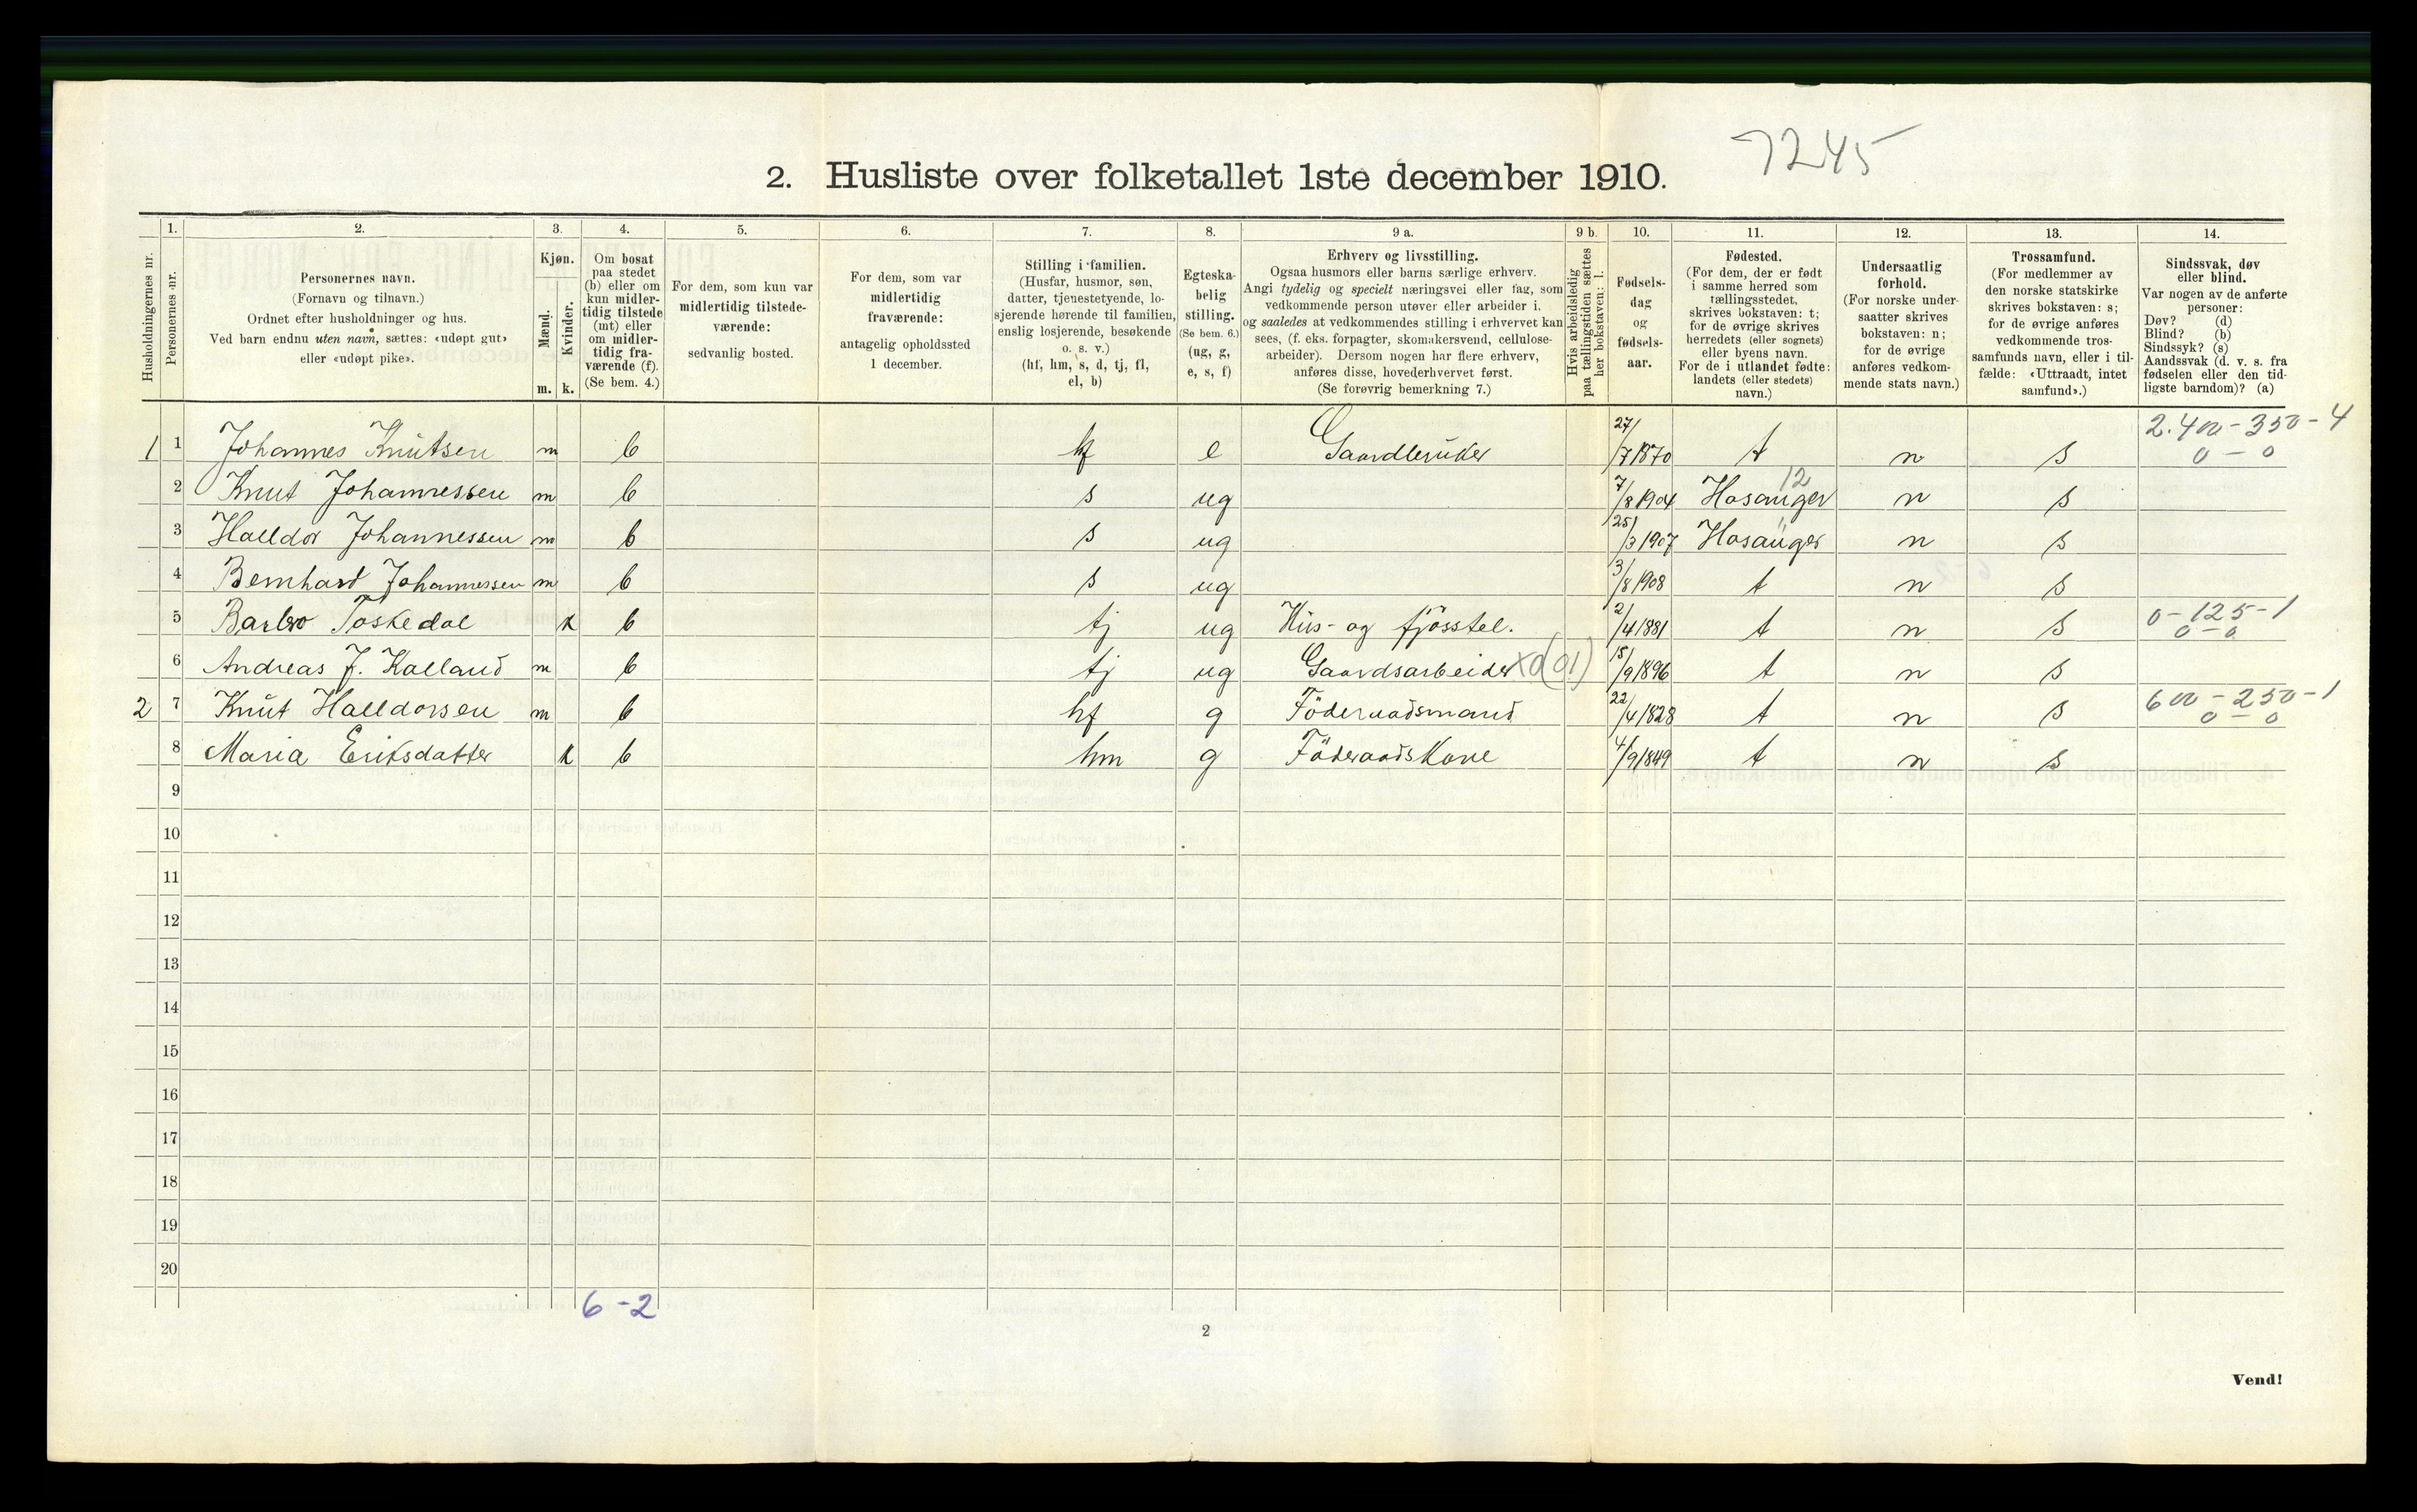 7245
2. Husliste over folketallet 1ste december 1910.
Husholdningernes nr.
1.
Personernes nr.
2.
Personernes navn.
(Fornavn og tilnavn.)
Ordnet efter husholdninger og hus.
Ved barn endnu uten navn, sættes: «udøpt gut»
eller «udøpt pike».
3.
Kjøn.
Mænd.
Kvinder.
m. k.
4.
Om bosat
paa stedet
(b) eller om
kun midler-
tidig tilstede
(mt) eller
om midler-
tidig fra-
værende (f).
(Se bem. 4.)
5.
For dem, som kun var
midlertidig tilstede-
værende:
sedvanlig bosted.
6.
For dem, som var
midlertidig
fraværende:
antagelig opholdssted
1 december.
7.
Stilling i familien.
(Husfar, husmor, søn,
datter, tjenestetyende, lo-
sjerende hørende til familien,
enslig losjerende, besøkende
o. s. v.)
(hf, hm, s, d, tj, fl,
el, b)
8.
Egteska-
belig
stilling.
(Se bem. 6.)
(ug, g,
e, s, f)
9 a.
Erhverv og livsstilling.
Ogsaa husmors eller barns særlige erhverv.
Angi tydelig og specielt næringsvei eller fag, som
vedkommende person utøver eller arbeider i,
og saaledes at vedkommendes stilling i erhvervet kan
sees, (f. eks. forpagter, skomakersvend, cellulose-
arbeider). Dersom nogen har flere erhverv,
anføres disse, hovederhvervet først.
(Se forøvrig bemerkning 7.)
9 b.
Hvis arbeidsledig
paa tællingstiden sættes
her bokstaven: l.
10.
Fødsels-
dag
og
fødsels-
aar.
11.
Fødested.
(For dem, der er født
i samme herred som
tællingsstedet,
skrives bokstaven: t;
for de øvrige skrives
herredets (eller sognets)
eller byens navn.
For de i utlandet fødte:
landets (eller stedets)
navn.)
12.
Undersaatlig
forhold.
(For norske under-
saatter skrives
bokstaven: n;
for de øvrige
anføres vedkom-
mende stats navn.)
13.
Trossamfund.
(For medlemmer av
den norske statskirke
skrives bokstaven: s;
for de øvrige anføres
vedkommende tros-
samfunds navn, eller i til-
fælde: «Uttraadt, intet
samfund».)
14.
Sindssvak, døv
eller blind.
Var nogen av de anførte
personer:
Døv? (d)
Blind? (b)
Sindssyk? (s)
Aandssvak (d. v. s. fra
fødselen eller den tid-
ligste barndom)? (a)
1 1 Johannes Knutsen m b hf e Gaardbruker 27/7 1870 t n s 2.400-350-4
0-0
2 Knut Johannessen m b s ug 7/8 1904 Hosanger 12 n s
3 Halldor Johannessen m b s ug 25/3 1907 Hosanger n s
4 Bernhard Johannessen m b s ug 3/8 1908 t n s
5 Barbro Toskedal k b tj ug Hus- og fjösstel. 2/4 1881 t n s 0-125-1
0-0
6 Andreas J. Kalland m b tj ug Gaardsarbeider X0(01) 15/9 1896 t n s
2 7 Knut Halldorsen m b hf g Föderaadsmand 22/4 1828 t n s 600-250-1
0-0
8 Maria Eriksdatter k b hm g Föderaadskone 4/9 1849 t n s
9
10
11
12
13
14
15
16
17
18
19
20
6-2
2
Vend!